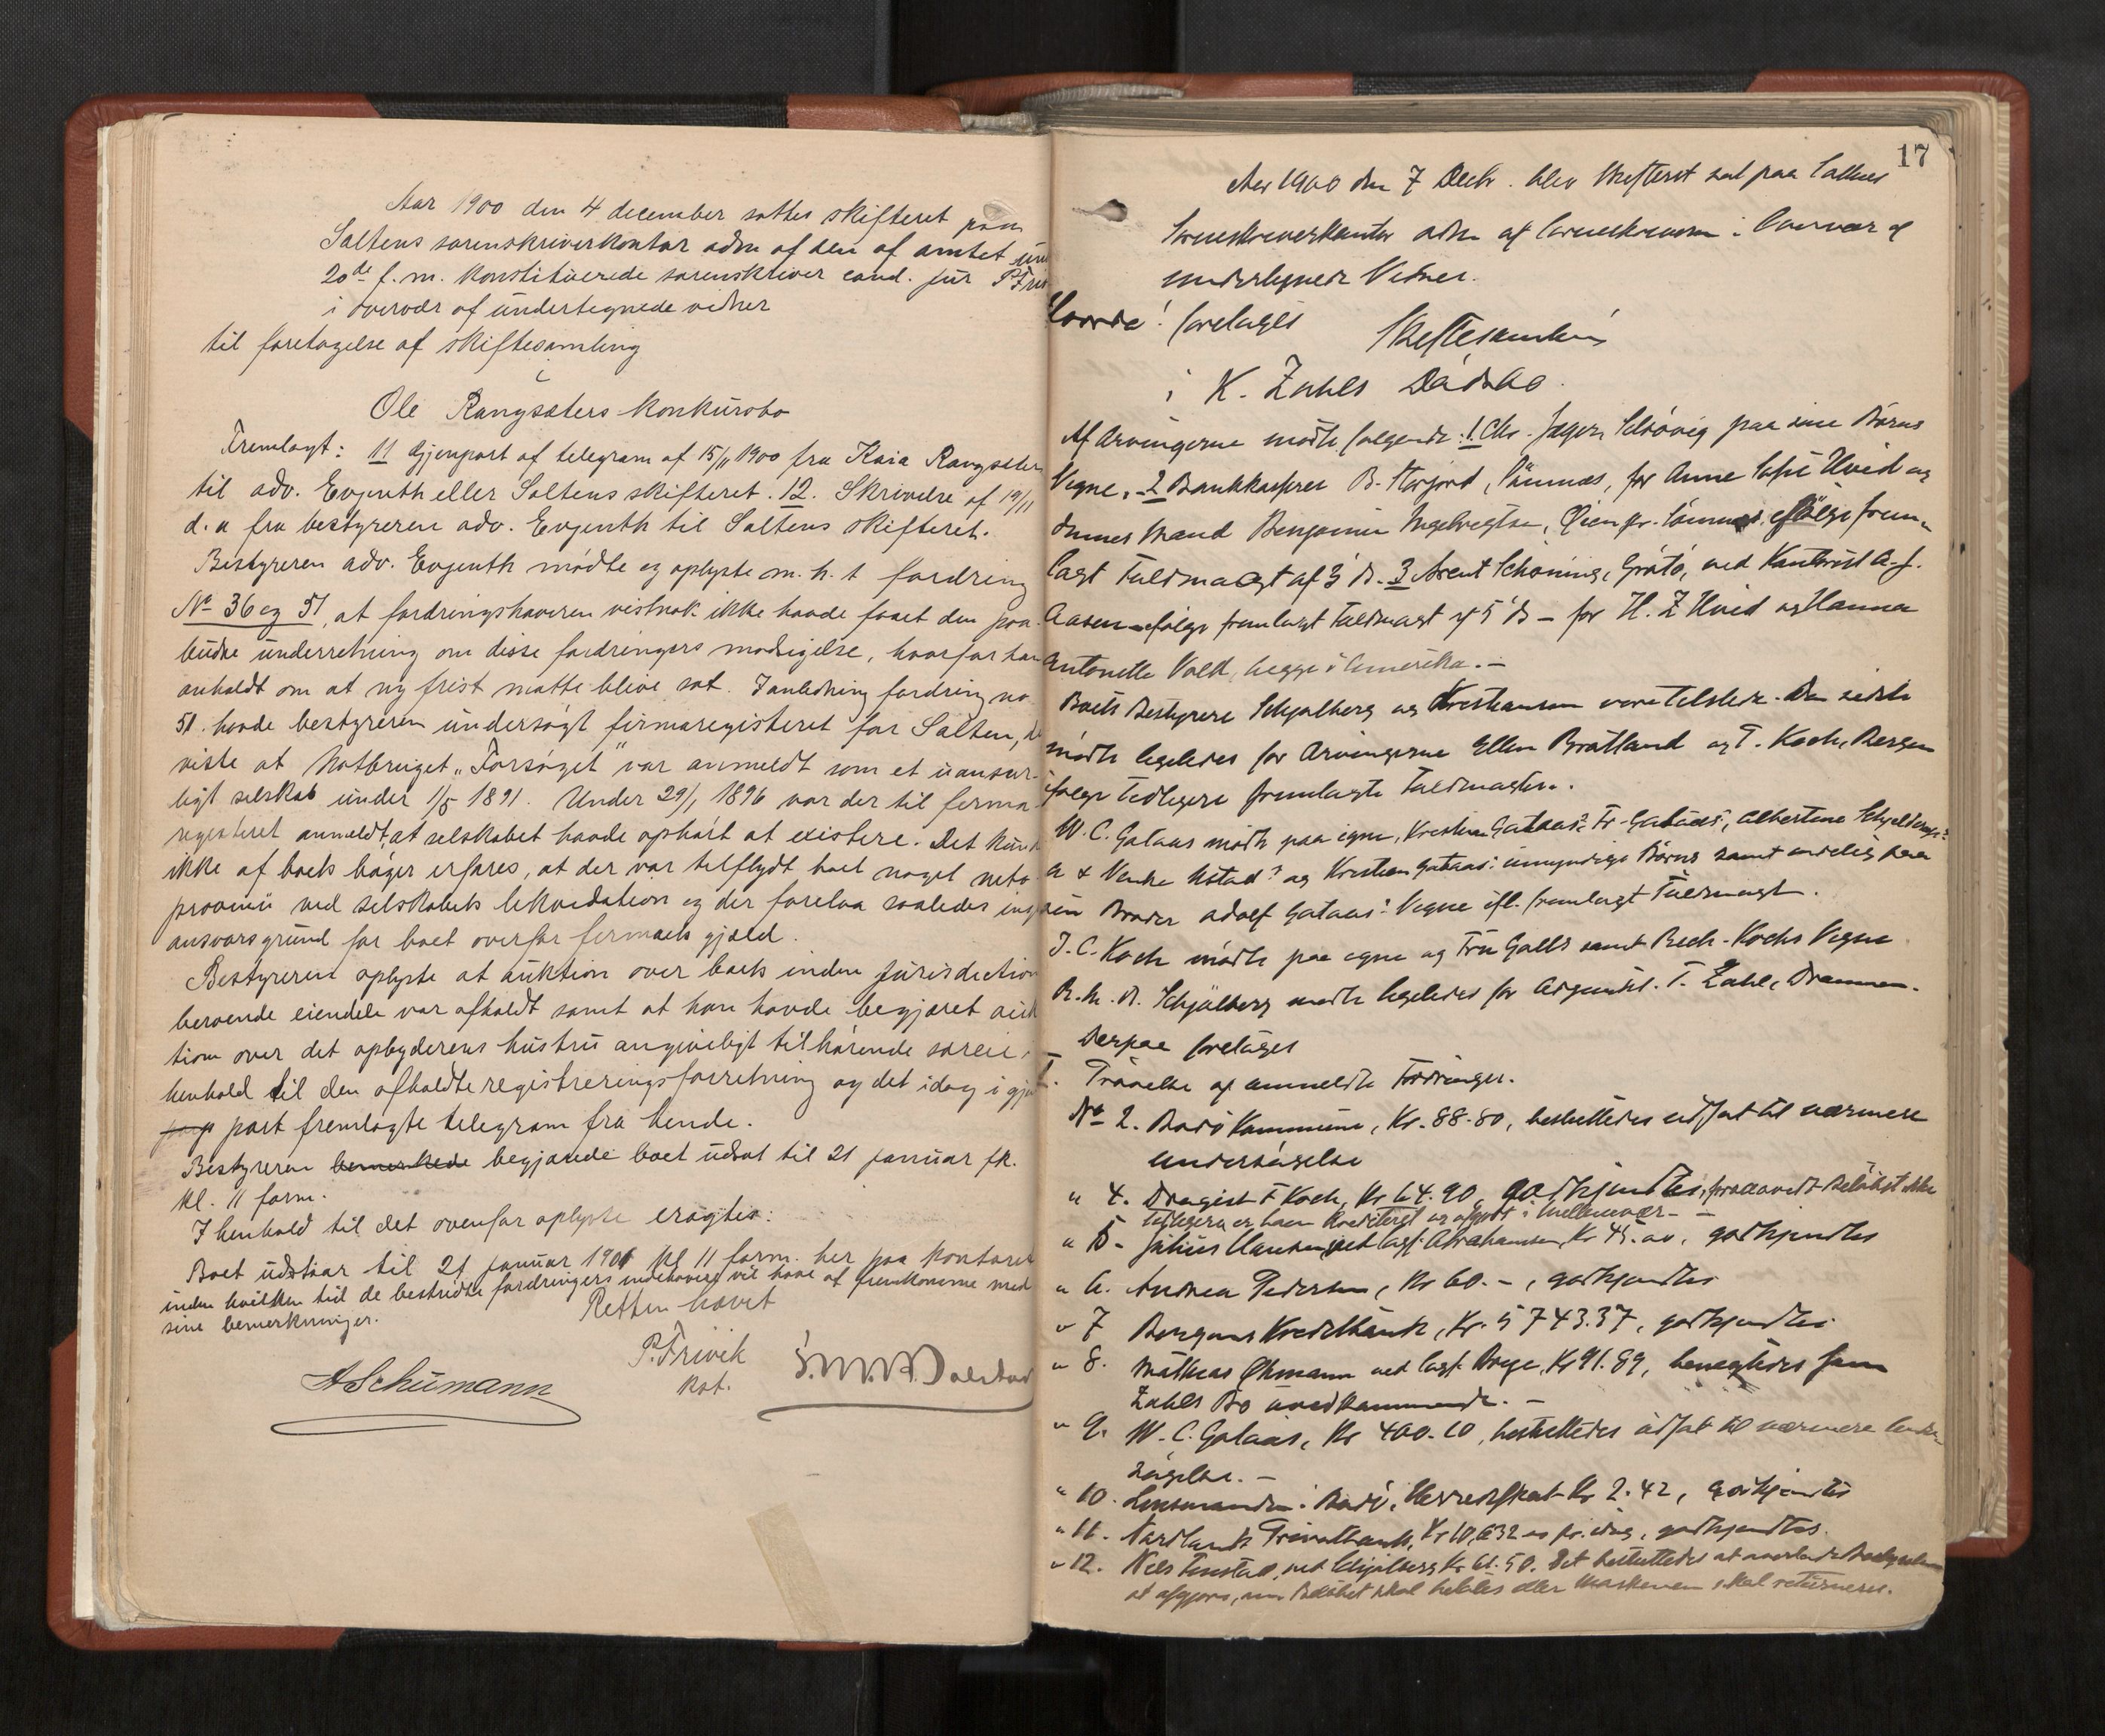 Aar 1900 den 4 december sattes skifteret paa
Saltens sorenskriverkontor adm af den af amtet un
20de f. m. konstituerede sorenskriver cand. jur P Friv
i overvær af undertegnede vidner
til foretagelse af skiftesamling
i
Ole Rangsæters konkursbo
Fremlagt: 11 Gjenpart af telegram af 15/11 1900 fra Kaia Rangsæter
til adv. Evjenth eller Saltens skifteret. 12. Skrivelse af 19/11
d. a fra bestyreren adv. Evjenth til Saltens skifteret.
Bestyreren adv. Evjenth mødte og oplyste m. h. t fordring
No 36 og 51, at fordringshaveren vistnok ikke havde faaet den paa-
budne underretning om disse fordringers modsigelse, hvorfor han
anholdt om at ny frist maatte blive sat. I anledning fordring no
51. havde bestyreren undersøgt firmaregisteret for Salten, de
viste at Notbruget „Forsøget" var anmeldt som et uansvar-
ligt selskab under 1/5 1891. Under 29/1 1896 var der til firma
registeret anmeldt, at selskabet havde ophørt at existere. Det kunde
ikke af boets bøger erfares, at der var tilflydt boet noget netto
provenu ved selskabets likvidation og der forelaa saaledes ing
ansvarsgrund for boet overfor firmaets gjæld.
Bestyreren oplyste at auktion over boets inden Jurisdiction
beroende eiendele var afholdt samt at han havde begjæret auk
tion over det opbyderens hustru angiveligt tilhørende særeie i
henhold til den afholdte registreringsforretning og det idag i gjen
part fremlagte telegram fra hende.
Bestyreren bemerkede begjærede boet udsat til 21 januar fk.
kl. 11 form.
I henhold til det ovenfor oplyste eragtes:
Boet udstaar til 21 januar 1901 kl 11 form. her paa kontoret
inden hvilken tid de bestridte fordringers indehavere vil have at fremkomme med
sine bemerkninger.
Retten hævet
P. Frivik
kst.
A Schumann
17
Aar 1900 den 7 Decbr. blev Skifteret sat paa Saltens
Sorenskriverkontor adm af Sorenskriveren i Overvær af
undertegnede Vidner.
Hvorda: foretages Skiftesamling
i K. Zahls Dødsbo.
Af Arvingerne mødte følgende: 1. Chr. Jæger Schövig paa sine Børns
Vegne, 2 Bankkasserer B. Storjord, Sannæs, for Anne Sofie Hveid og
dennes Mand Benjamin Ingebrigtsen, Øien pr. Sømnæs ifølge frem-
lagt Fuldmagt af 3 ds. 3 Arent Schöning, Gråtø, ved Kantorist A. J.
Aasen ifølge fremlagt Fuldmagt af 5 ds - for H. Z Hveid og Hanna
Antonette Vold, begge i Amerika. -
Boets Bestyrere Schjølberg og Kristiansen vare tilstede. Den sidste
mødte ligeledes for Arvingerne Ellen Bratland og T. Koch, Bergen
ifølge tidligere fremlagte Fuldmagter.
W. C. Gataas mødte paa egne, Kristian Gataas', Fr. Gataas', Albertine Schjelderup's
Kristian Gataas' umyndige Børns samt endelig paa
sin Broder Adolf Gataas' Vegne ifl. fremlagt Fuldmagt.
J. C. Koch mødte paa egne og Fru Galls samt Bech-Kochs Vegne
Schjølberg mødte ligeledes for T. Zahl, Drammen.
Derpaa foretages
1. Prøvelse af anmeldte Fordringer.
No 2. Bodø Kommune, Kr. 88.80, besluttedes udsat til nærmere
Undersøgelse
" 4. Drogist F Koch, Kr 64.90, godkjendtes, forsaavidt Beløbet ikke
tidligere er ham krediteret og afgjort i Mellemvær. -
" 5 - Julius Hansen ved Sagf. Abrahamsen, Kr 45.00, godkjendtes
" 6. Andrea Pedersen, Kr 60.-, godkjendtes
" 7 Bergens Kreditbank, Kr. 5743.37, godkjendtes
" 8. Mathias Øhmann ved Sagf. Kr 91.89, benegtedes som
Zahls Bo uvedkommende. -
" 9. W. C. Gataas, Kr 400.10, besluttedes udsat til nærmere Under-
søgelse. -
" 10. Lensmanden i Bodø, Herredskat Kr 2.42, godkjendtes
" 11. Nordlands Privatbank, Kr 10,632 pr. idag, godkjendtes.
" 12. Nils ved Schjølberg Kr 61.50. Det besluttedes at overlade Bestyrelsen
at afgjøre, om Beløbet skal betales eller Maskinen skal returneres.